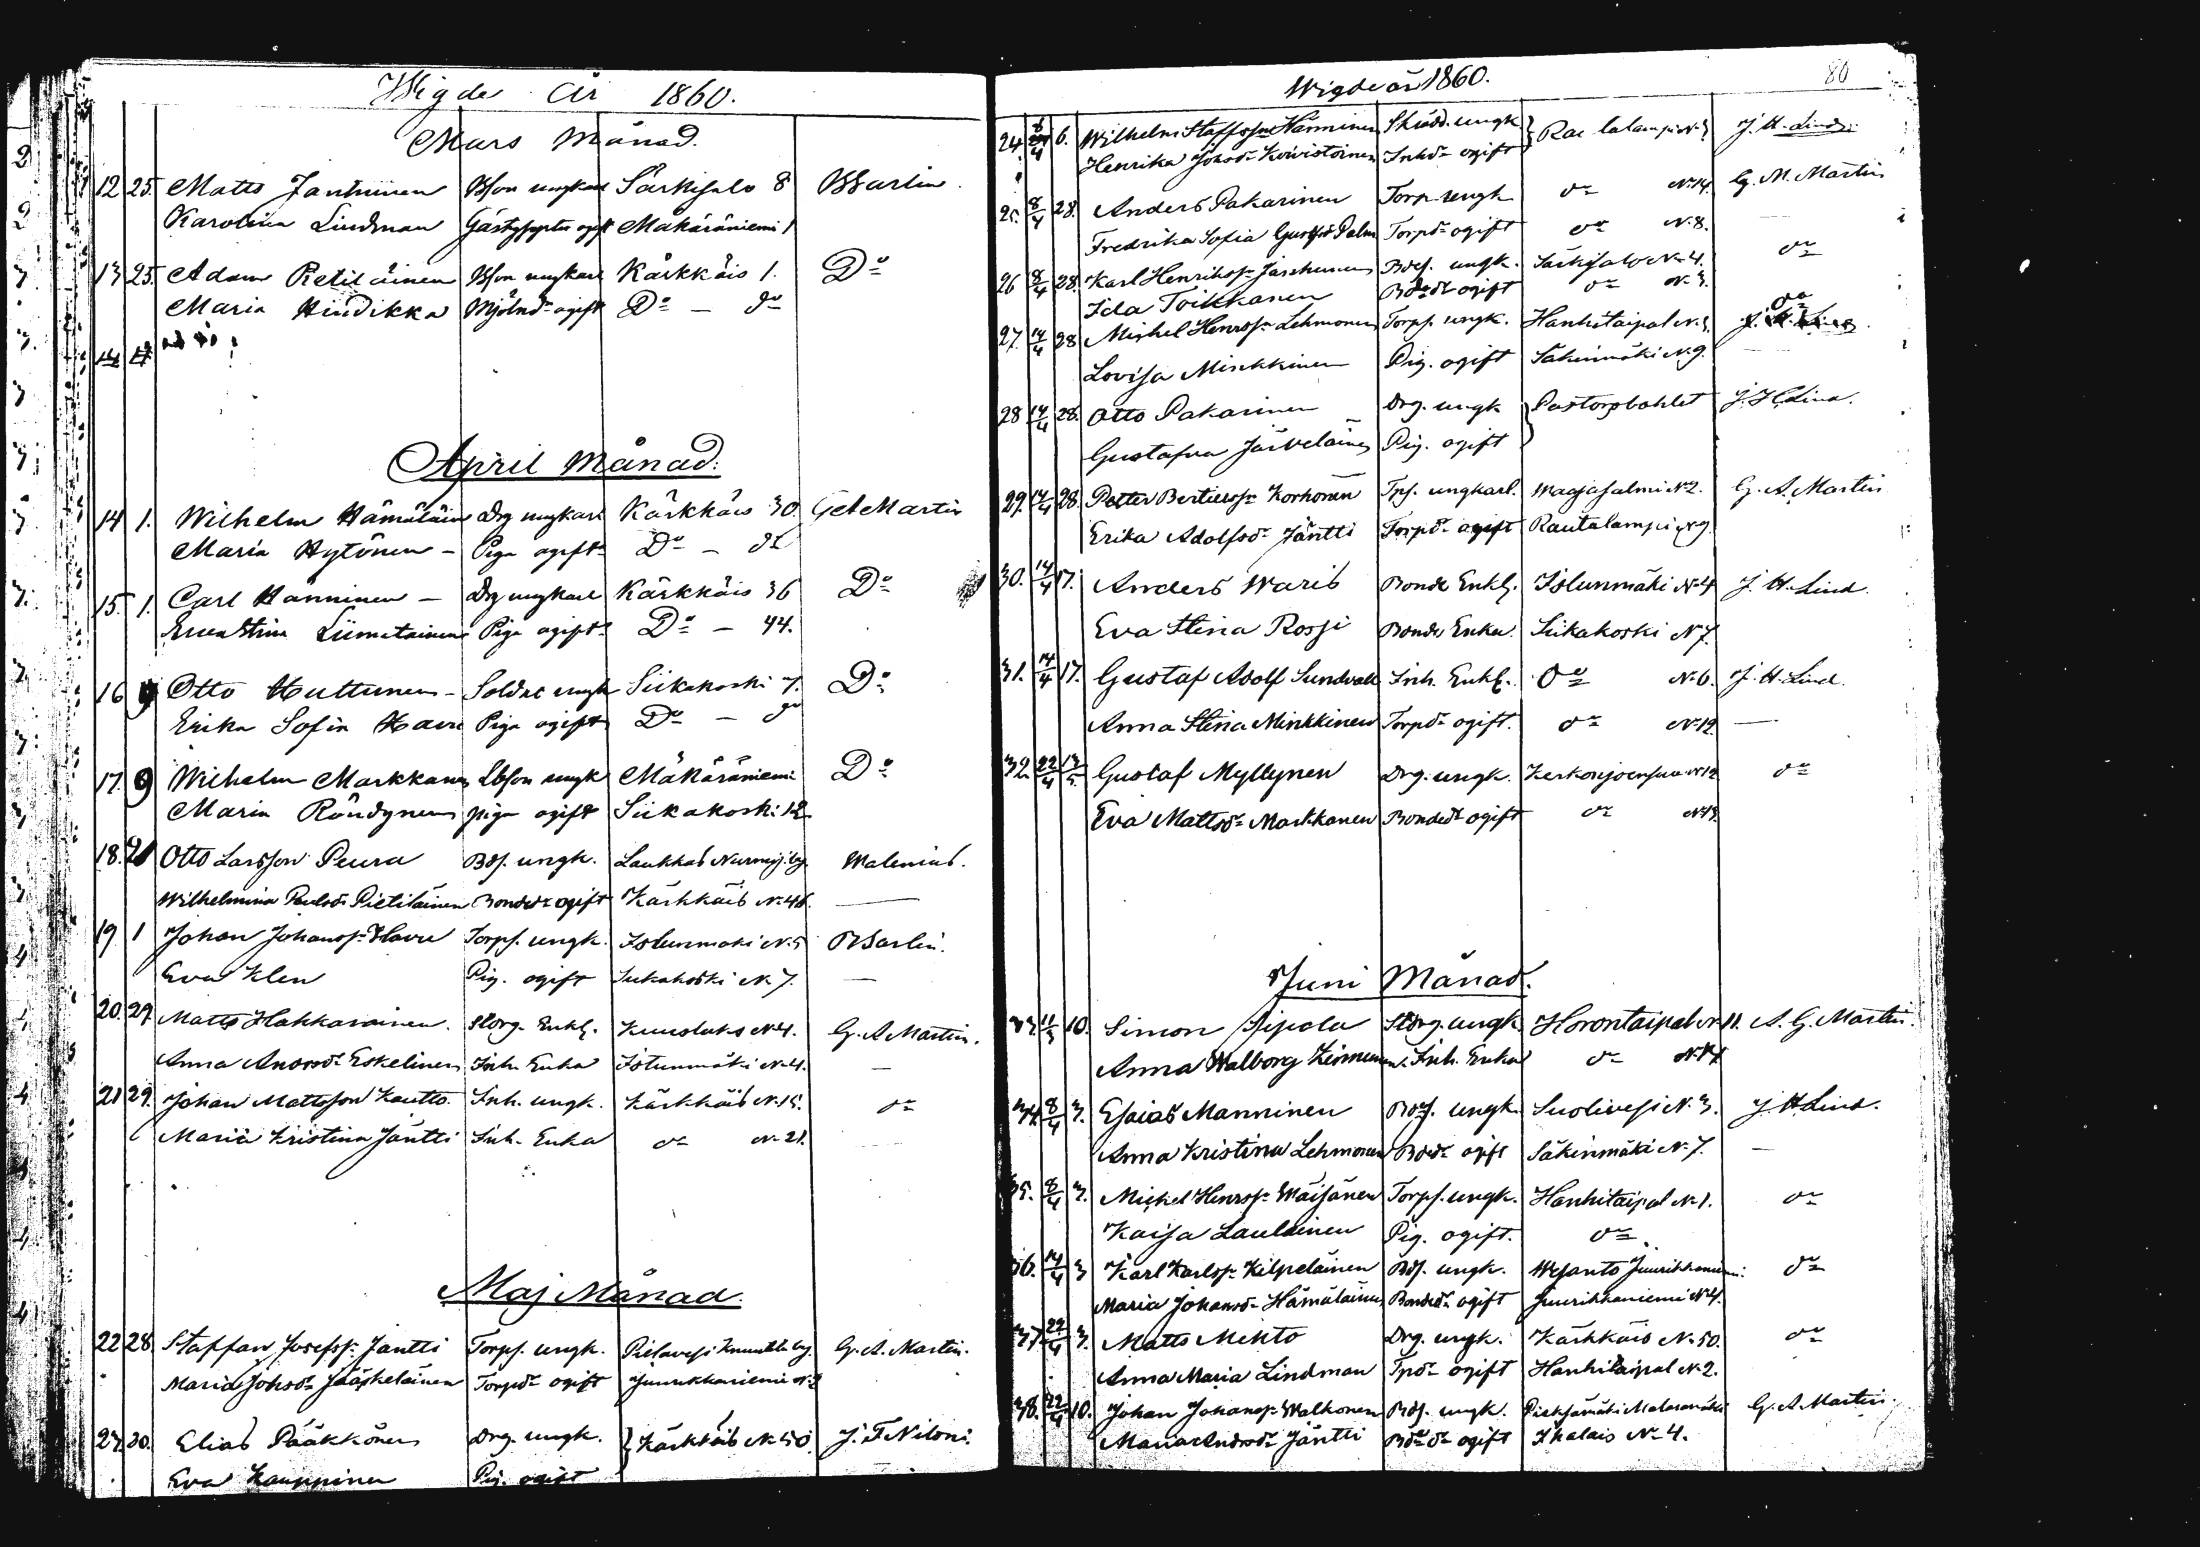 Wigde år 1860.
Mars Månad.
12 25. Matts Janhunen Bson ungkarl Särkisalo 8 BWarlin.
Karolina Lindman Gästgf. ogift Mäkäräniemi 1
13 25. Adam Pietiläinen Bson ungkarl Kärkkäis 1. Do
Maria Hindikka Mjölnd. ogift Do — do
14
April Månad.
14 1. Wilhelm Hämäläin Drg ungkarl Kärkkäis 30. G A Martin
Maria Hytönen – Piga ogift Do – do
15. 1. Carl Hänninen – Drg ungkarl Kärkkäis 36 Do
Liimatainen Piga ogift Do – 44.
16 9 Otto Huttunen – Soldat ungk Siikakoski 7. Do
Erika Sofia Havu Piga ogift Do – do
17. 9 Wilhelm Markkanen ungk Mäkäräniemi Do
Maria Röndynen piga ogift Siikakoski 12
18. Otto Larsson Peura Bds. ungk. Laukkas by. Walenius.
Wilhelmina Paulsdr Pietiläinen Bondedr ogift Kärkkäis N. 46. —
19 1 Johan Johanss. Havu Torps. ungk. Istunmäki N. 5 BWarlin.
Eva Klen Pig. ogift Siikakoski N. 7. —
20. 29. Matts Hakkarainen. Enkl. Kuuslaks N. 4. G. A. Martin.
Anna Andersdr Eskelinen Inh. Enka Istunmäki N. 4. —
21 29. Johan Mattsson Kautto. Inh. ungk. Kärkkäis N. 15. do
Maria Kristina Jäntti Inh. Enka do N. 21.
Maj Månad.
22 28. Staffan Josefss. Jäntti Torps. ungk. Pielavesi by. G. A. Martin.
Maria Johsdr Jääskeläinen Torpdr ogift Juurikkaniemi N. 2
23. 30. Elias Pääkkönen Drg. ungk. } Kärkkäis N. 50. J. F Niloni.
Eva Kauppinen Pig. ogift
Wigde år 1860. 80
24. 6/4 6. Wilhelm Staffss. Hänninen Skrädd. ungk. } Rautalampi N. 3 J. H. Lind.
Henrika Johsdr Koivistoinen Inhdr ogift
25. 8/4 28. Anders Pakarinen Torp. ungk do N. 14. G. A. Martin
Fredrika Sofia Gustfsdr Palm Torpdr ogift do N. 8. —
26 8/4 28. Karl Henrikss. Janhunen Bdes. ungk. Särkisalo N. 4. do
Ida Toikkanen Bdedr ogift do N. 3.
27. 14/4 28 Mickel Henrss. Lehmonen Torps. ungk. Hankitaipal N. do
Lovisa Minkkinen Pig. ogift Säkinmäki N. 9. —
28 14/4 28. Otto Pakarinen Drg. ungk } Pastorsbohlet J. H. Lind.
Gustafva Järveläinen Pig. ogift
29. 14/4 28. Petter Bertilss. Korhonen Tps. ungkarl. Waajasalmi N. 2. G. A. Martin
Erika Adolfsdr Jäntti Torpdr ogift Rautalampi N. 9.
30. 14/4 17. Anders Waris Bonde Enkl. Istunmäki N. 4 J. H. Lind.
Eva Stina Rossi Bonde Enka. Siikakoski N 7.
31. 14/4 17. Gustaf Adolf Sundvall Inh. Enkl. Do N. 6. J. H. Lind.
Anna Stina Minkkinen Torpdr ogift. do N. 12 —
32 22/4 13/5 Gustaf Myllynen Drg. ungk. Kerkonjoensuu N. 12 do
Eva Mattsdr Markkanen Bondedr ogift do N. 13.
Juni Månad.
33. 11/3 10. Simon Sipola ungk Horontaipal N. 11. A. G. Martin.
Anna Walborg Inh. Enka do
34. 8/4 3. Esaias Manninen Bds. ungk. Suolivesi N. 3. J. H Lind.
Anna Kristina Lehmonen Bdedr ogift Säkinmäki N. 7. —
35. 8/4 3. Mickel Henrss. Wäisänen Torps. ungk. Hankitaipal N. 1. do
Kaisa Laulainen Pig. ogift. do
36. 14/4 3 Karl Karlss. Kilpeläinen Bds. ungk. Wesanto Juurikkaniemi. do
Maria Johansdr Hämäläinen Bondedr ogift Juurikkaniemi N. 4.
37. 22/4 3. Matts Minto Drg. ungk. Kärkkäis N. 50. do
Anna Maria Lindman Tpdr ogift Hankitaipal N. 2.
38. 22/4 10. Johan Johanss. Walkonen Bds. ungk. Pieksämäki G. A. Martin.
Maria Andrsdr Jäntti Bdedr ogift Ihalais N. 4.